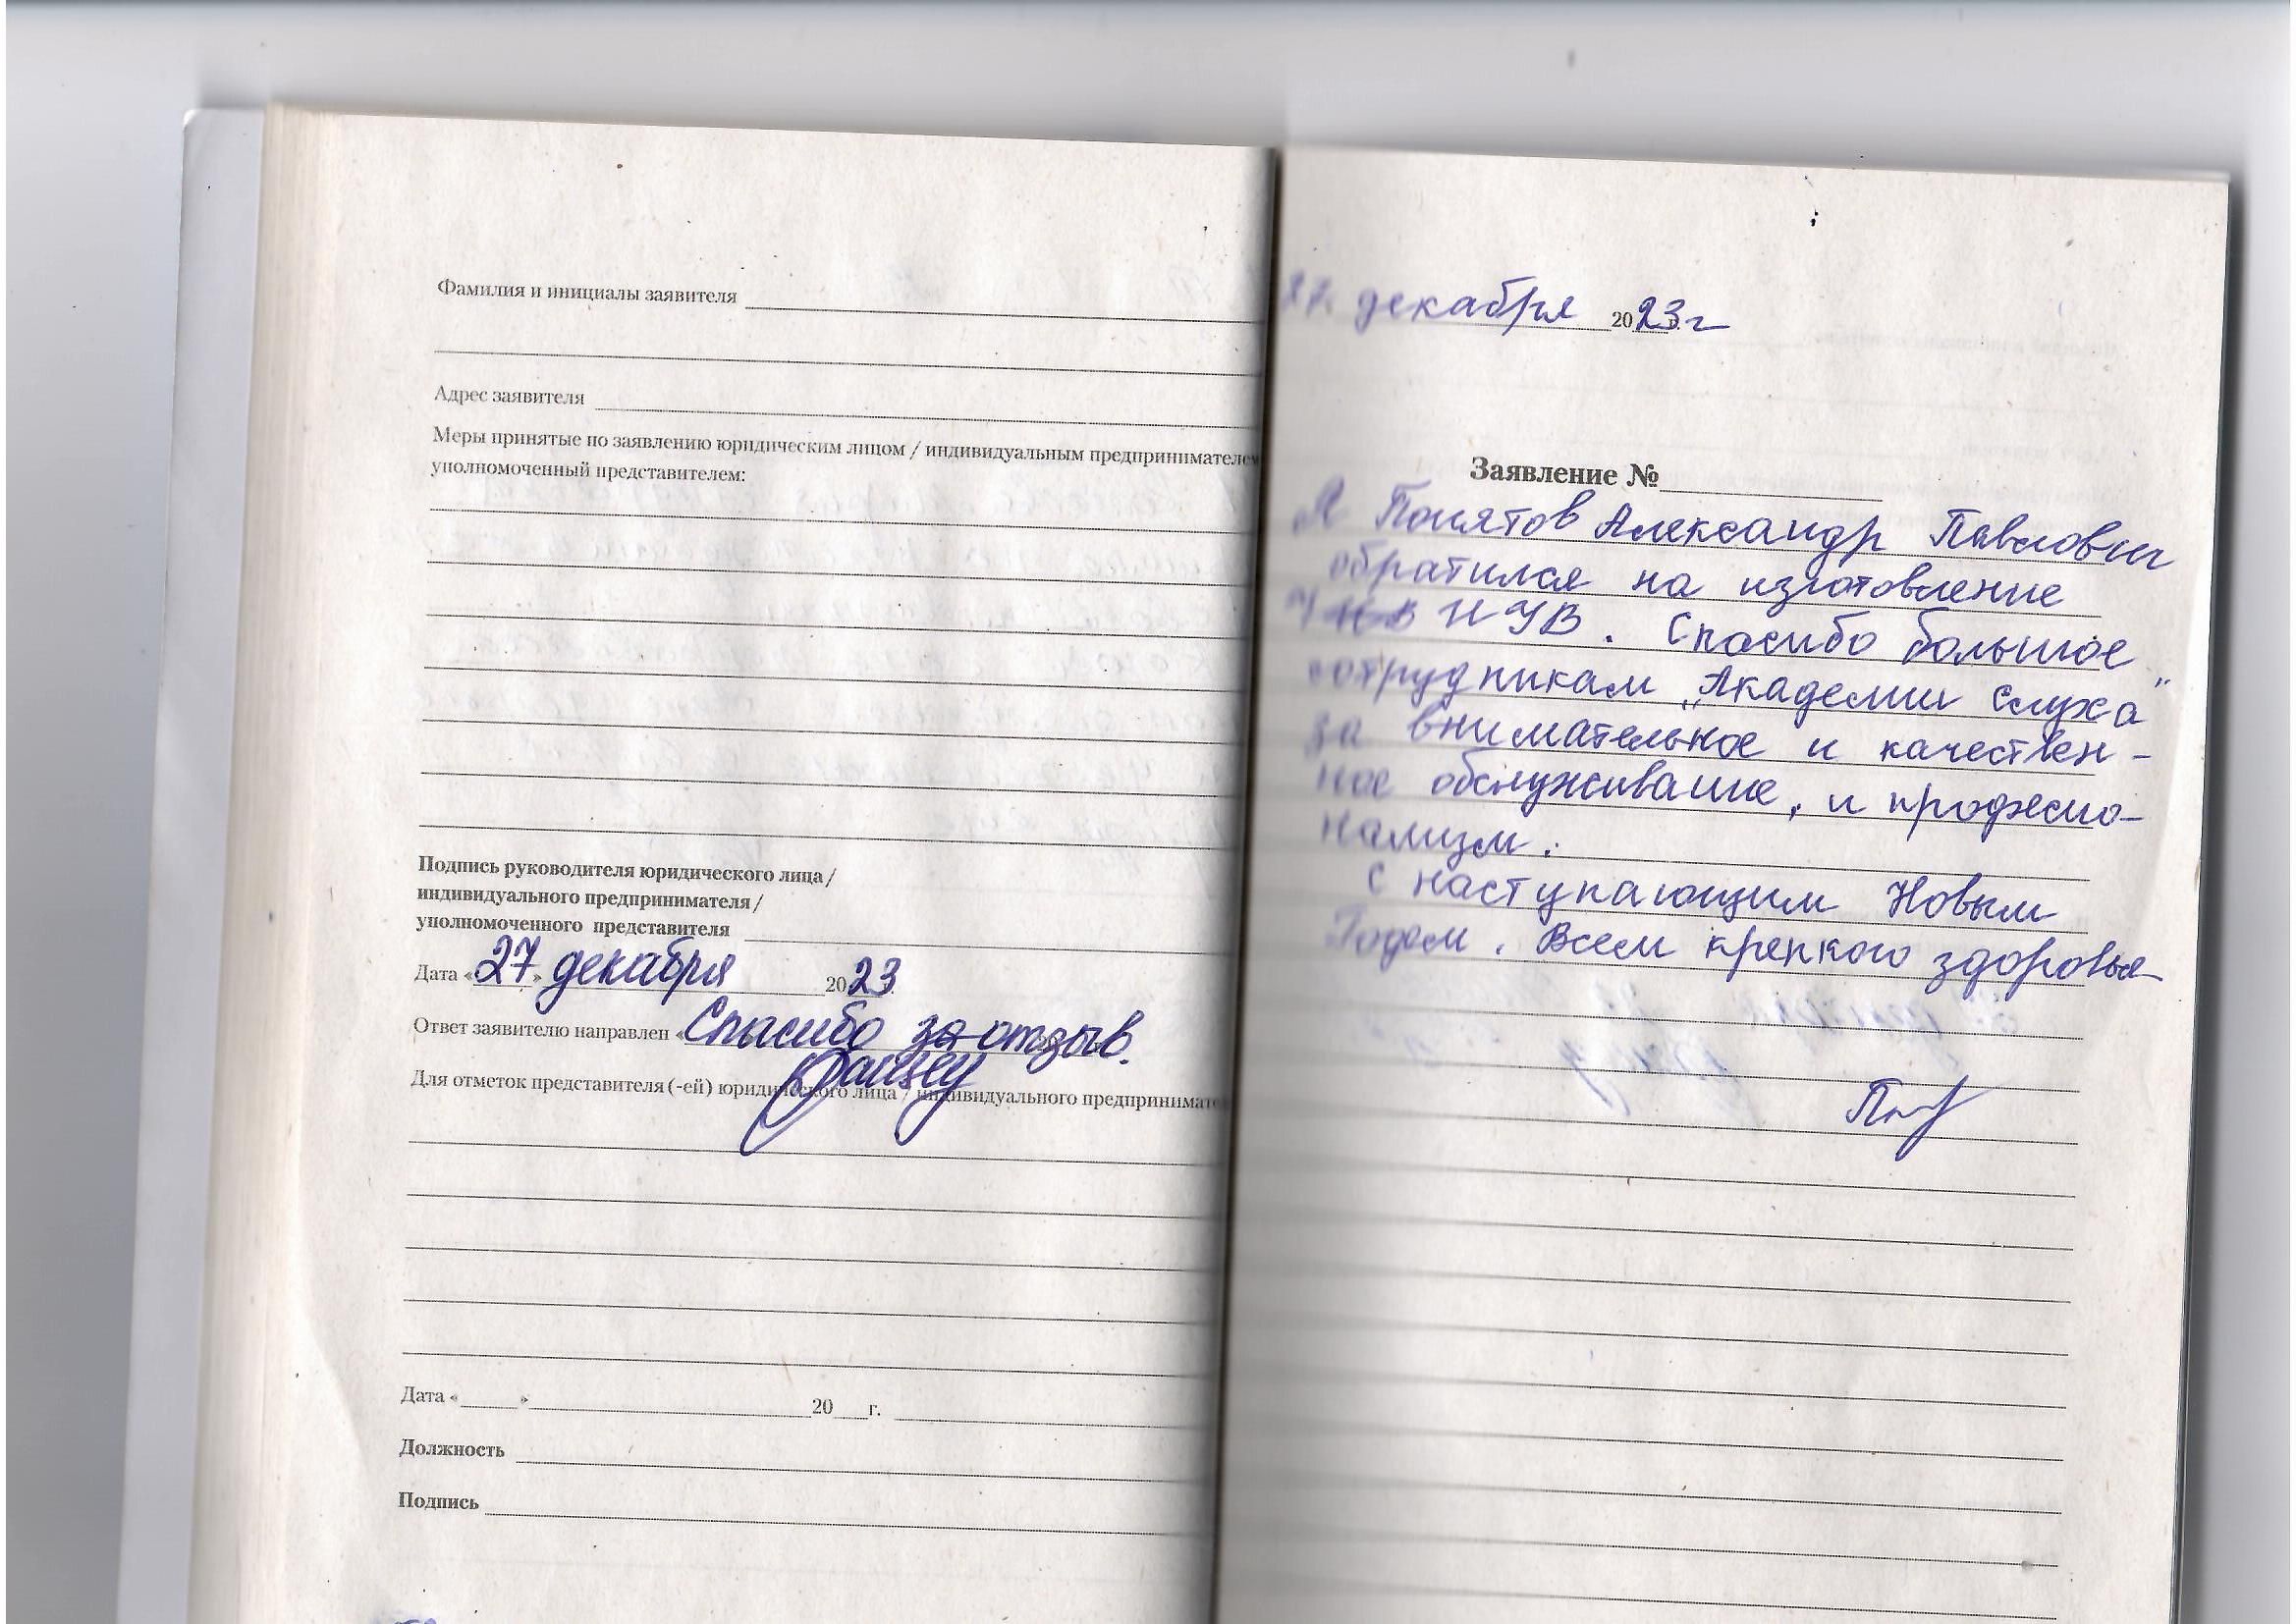 Фамилия и инициалы заявителя
Адрес заявителя
Меры принятые по заявлению юридическим лицом / индивидуальным предпринимателем
уполномоченный представителем:
Подпись руководителя юридического лица /
индивидуального предпринимателя /
уполномоченного представителя
Дата «27» декабря 2023
Ответ заявителю направлен «Спасибо за отзыв.
Для отметок представителя (-ей) юридического лица / индивидуального предпринимате
Дата «____»____20__г.
Должность
Подпись
27. декабря 2023 г
Заявление №
Я Понятов Александр Павлович
обратился на изготовление
ИУВ. Спасибо большое
сотрудникам „Академии Слуха"
за внимательное и качествен-
ное обслуживание, и професио-
нализм.
С наступающим Новым
Годом. Всем крепкого здоровья